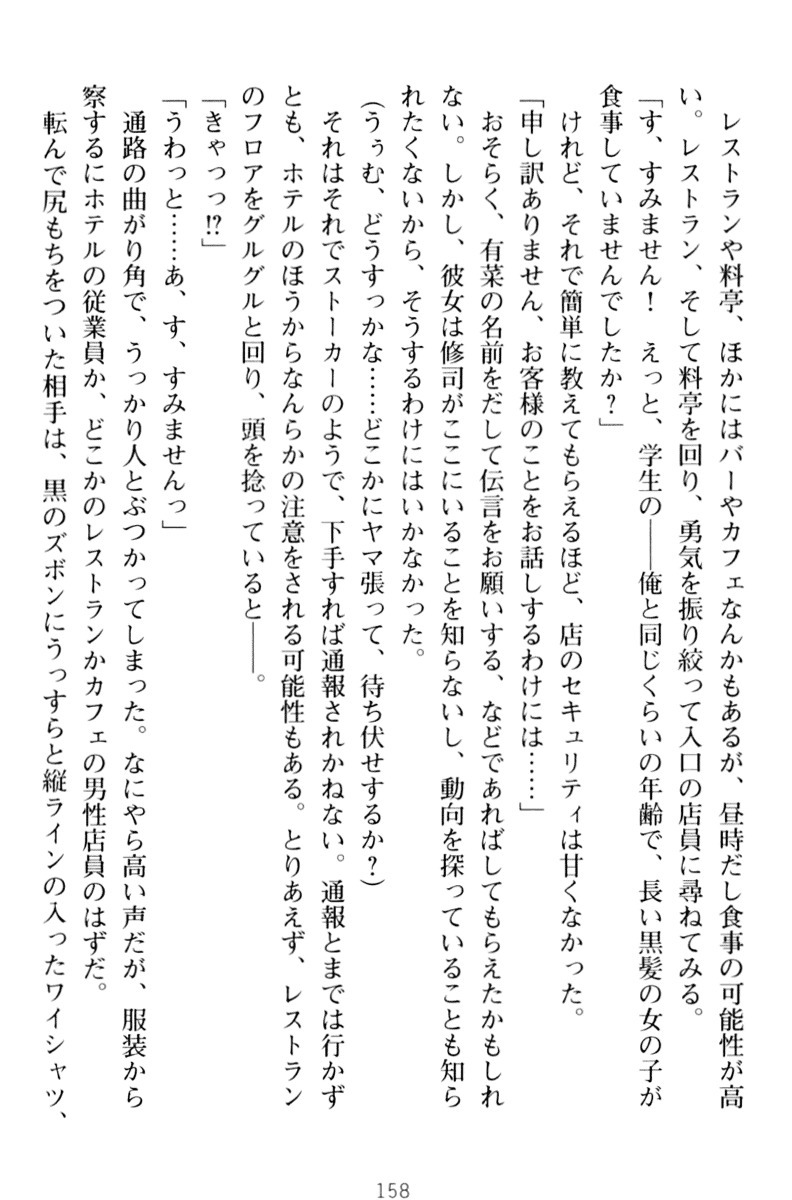 レストランや料亭、ほかにはバーやカフェなんかもあるが、昼時だし食事の可能性が高
い。レストラン、そして料亭を回り、勇気を振り絞って入口の店員に尋ねてみる。
「す、すみません！　えっと、学生の――俺と同じくらいの年齢で、長い黒髪の女の子が
食事していませんでしたか？」
けれど、それで簡単に教えてもらえるほど、店のセキュリティは甘くなかった。
「申し訳ありません、お客様のことをお話しするわけには……」
おそらく、有菜の名前をだして伝言をお願いする、などであればしてもらえたかもしれ
ない。しかし、彼女は修司がここにいることを知らないし、動向を探っていることも知ら
れたくないから、そうするわけにはいかなかった。
（うぅむ、どうすっかな……どこかにヤマ張って、待ち伏せするか？）
それはそれでストーカーのようで、下手すれば通報されかねない。通報とまでは行かず
とも、ホテルのほうからなんらかの注意をされる可能性もある。とりあえず、レストラン
のフロアをグルグルと回り、頭を捻っていると――。
「きゃっっ!?」
「うわっと……あ、す、すみませんっ」
通路の曲がり角で、うっかり人とぶつかってしまった。なにやら高い声だが、服装から
察するにホテルの従業員か、どこかのレストランかカフェの男性店員のはずだ。
転んで尻もちをついた相手は、黒のズボンにうっすらと縦ラインの入ったワイシャツ、
158